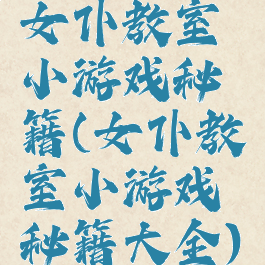 女仆教室
小游戏秘
籍(女仆教
室小游戏
秘籍大全)